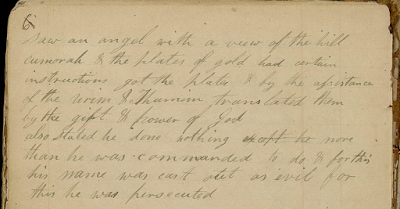 6
saw an angel with a view of the hill
cumorah & the plates of gold had certain
instructions got the plates & by the assistance
of the urim & Thumim translated them
by the gift & power of God
also stated he done nothing except he more
than he was commanded to do & for this
his name was cast out as evil for
this he was persecuted